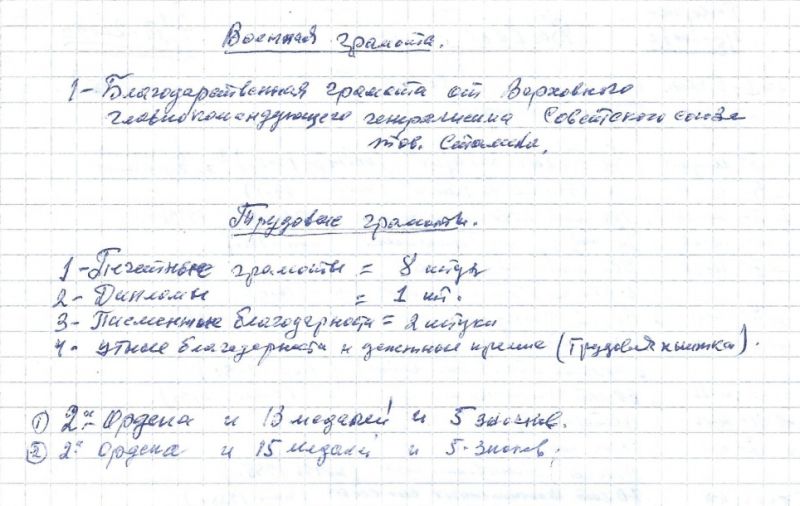 Военная грамота.
1- Благодарственная грамота от Верховного
главнокомандующего генералисима Советского союза
тов. Сталина.
Трудовые грамоты.
1- Печатные грамоты = 8 штук
2- Дипломы = 1 шт.
3- Писменные благодарности = 2 штуки
4- утные благодарности и денежные премие (Трудовая книжка).
① 2ª- Ордена и 13 медалей и 5 значков.
② 2ª Ордена и 15 медалей и 5-Знаков;